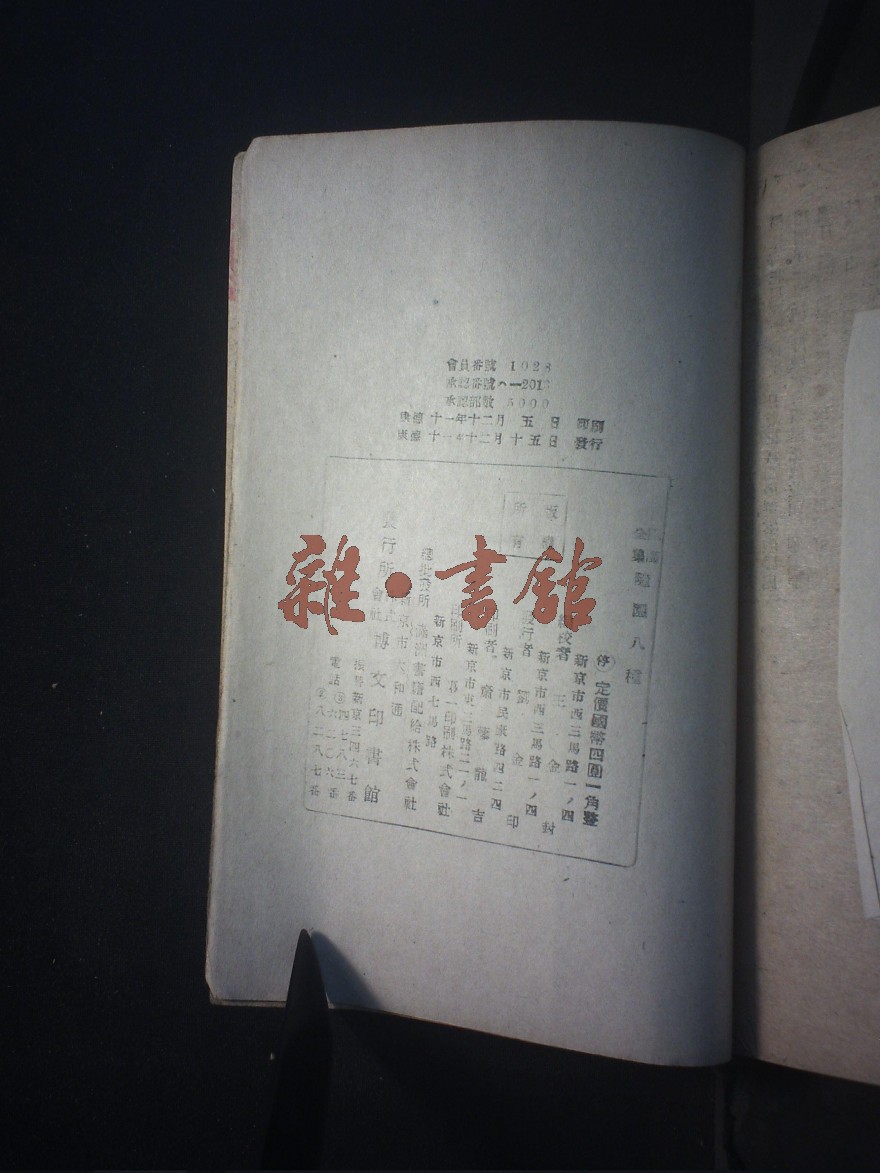 會員番號 1028
承認番號 ヘ—2013
承認部數 5000
康德 十一年十二月 五 日 印刷
康德 十一年十二月 十五日 發行
版權所有
全集 八種
停 定價國幣四圓一角整
新京市西三馬路一ノ四
編校者 王 金 封
新京市西三馬路一ノ四
發行者 劉 金 印
新京市民康路四二四
印刷者 齋藤龍吉
新京市東三馬路二一ノ一
印刷所 第一印刷株式會社
新京市西七馬路
總批發所 滿洲書籍配給株式會社
新京市大和通
發行所 株式會社 博文印書館
振替新京三四六七番
電話②四七八三
六二〇六番
②八二八七番
雜·書館